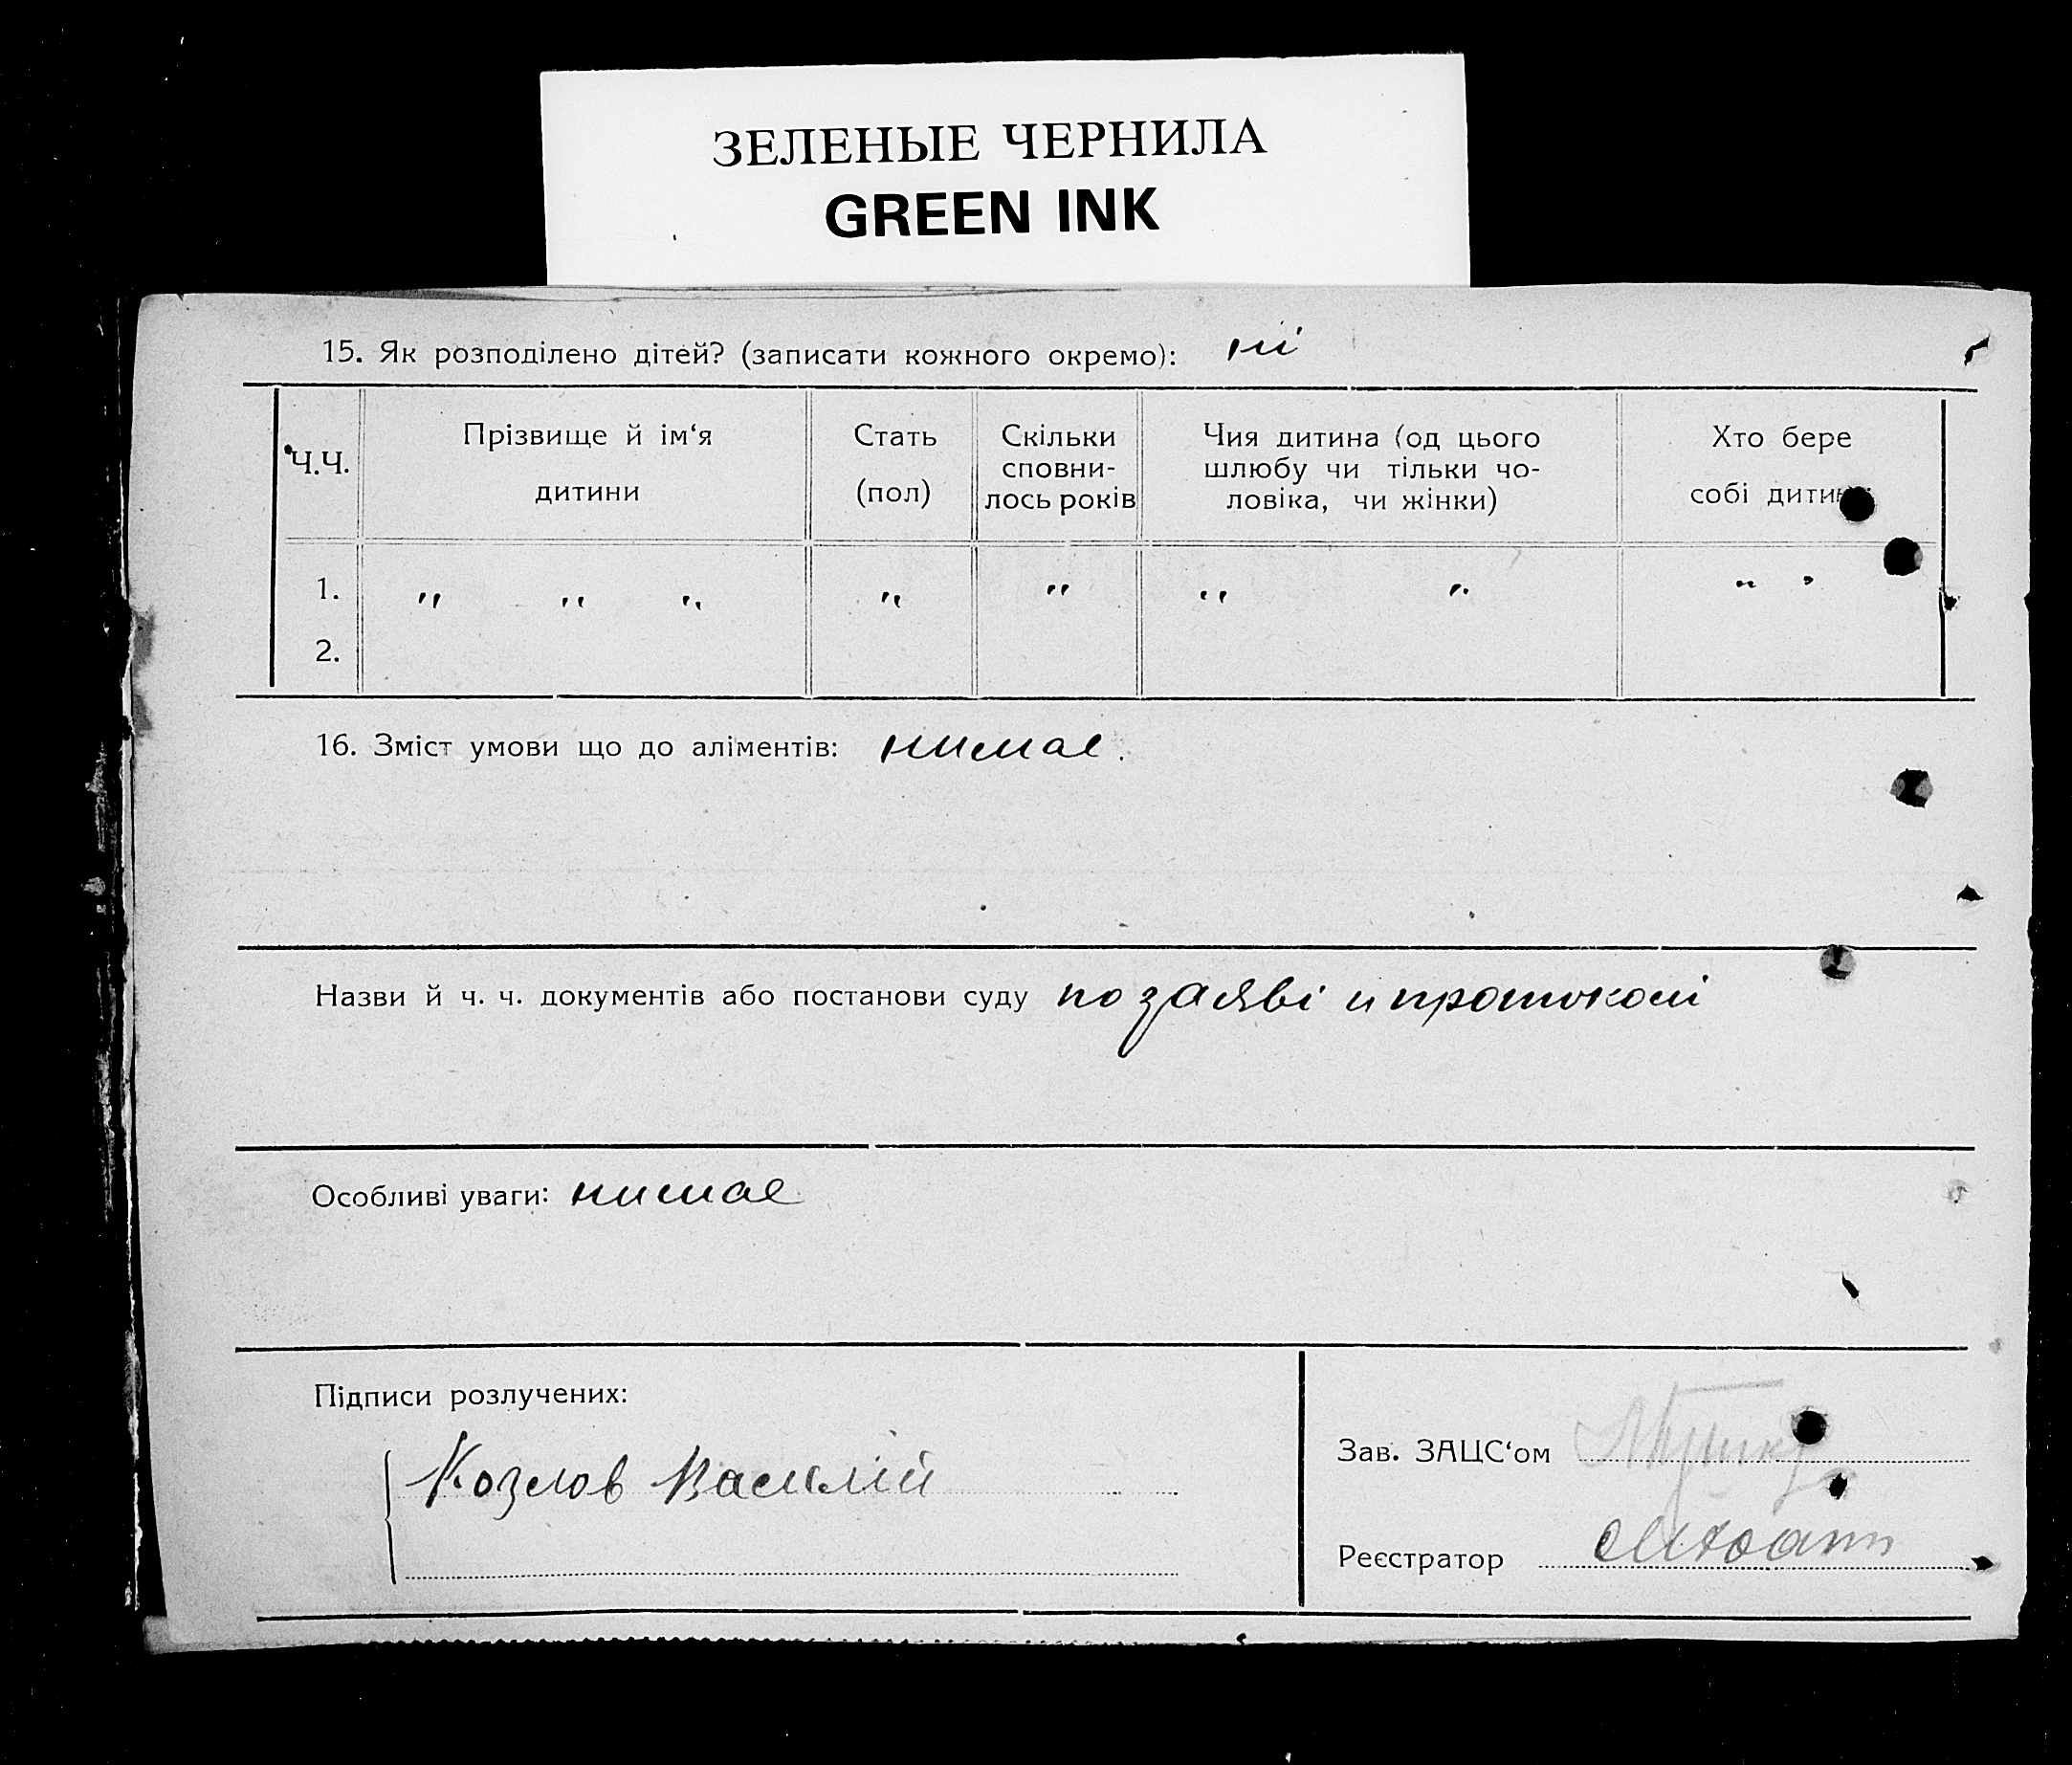 ЗЕЛЕНЫЕ ЧЕРНИЛА
GREEN INK
15. Як розподілено дітей? (записати кожного окремо): ні
Ч.Ч. Прізвище й ім‘я дитини Стать (пол) Скільки сповни-лось років Чия дитина (од цього шлюбу чи тільки чо-ловіка, чи жінки) Хто бере собі
1. „ „ „ „ „ „ „ „ „
2.
16. Зміст умови що до аліментів: нимае.
Назви й ч. ч. документів або постанови суду по заяві и протоколі
Особливі уваги: нимае
Підписи розлучених:
Козлов Василій
Зав. ЗАЦС‘ом
Реєстратор